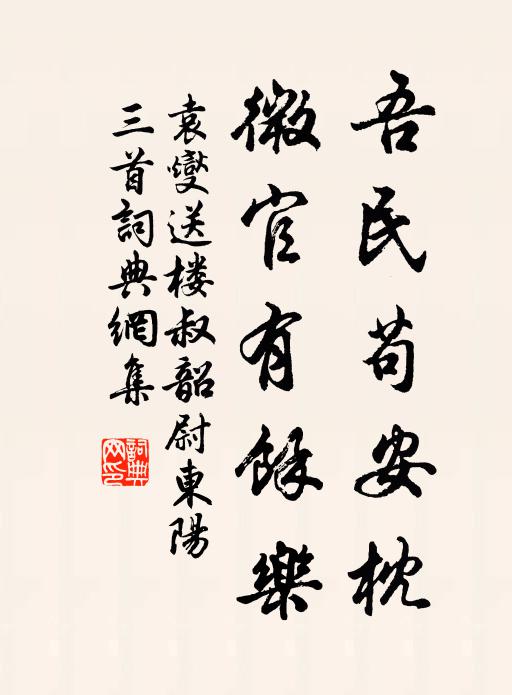 吾民苟安枕
微官有餘樂
袁燮送楼叔韶尉東陽
三首詞典網集
詞典网印